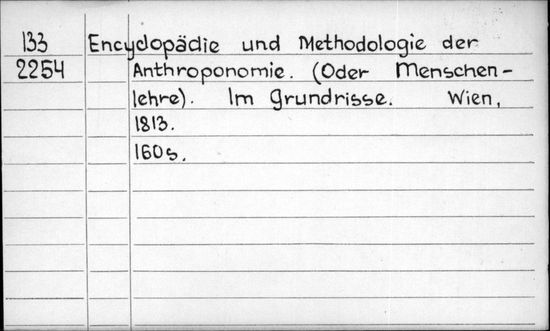 133 Encyclopädie und Methodologie der
2254 Anthroponomie. (Oder Menschen-
lehre). Im Grundrisse. Wien,
1813.
160s.